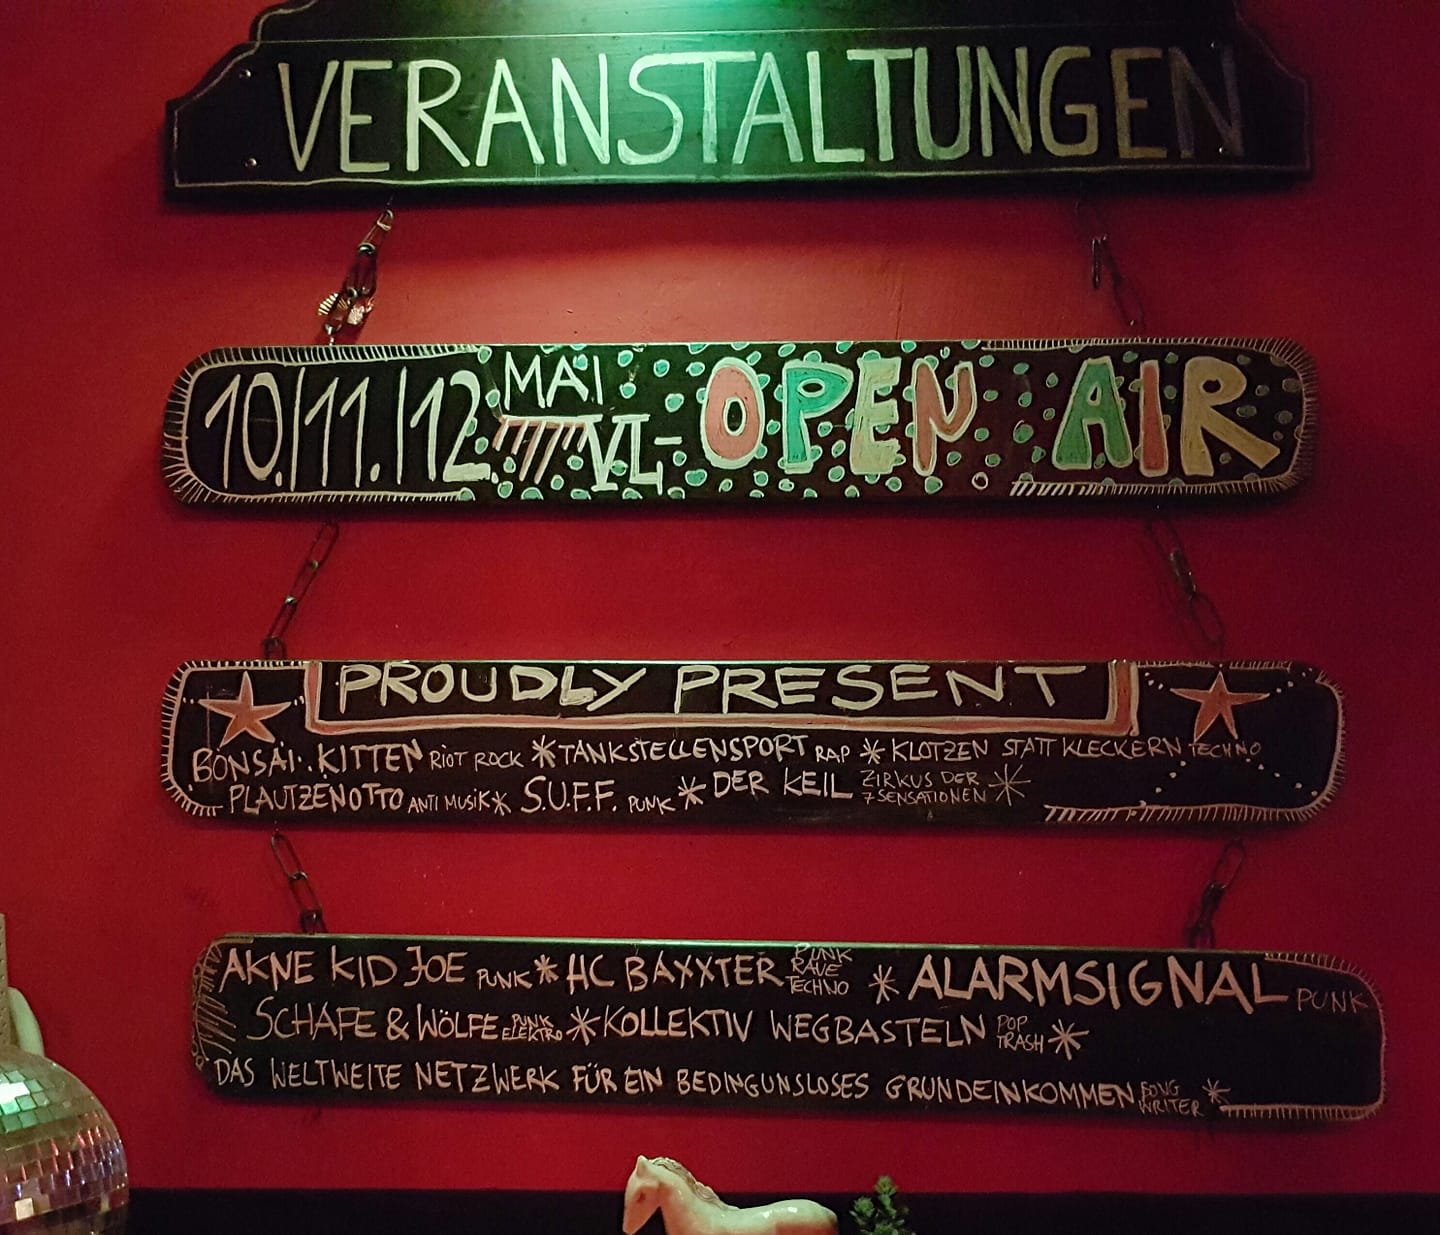 VERANSTALTUNGEN
10./11./12. MAI VL-OPEN AIR
PROUDLY PRESENT
BONSAI..KITTEN RIOT ROCK * TANKSTELLENSPORT RAP * KLOTZEN STATT KLECKERN TECHNO
PLAUTZENOTTO ANTI MUSIK * S.U.F.F. PUNK * DER KEIL ZIRKUS DER 7 SENSATIONEN *
AKNE KID JOE PUNK * HC BAXXTER PUNK RAVE TECHNO * ALARMSIGNAL PUNK
SCHAFE & WÖLFE PUNK ELEKTRO * KOLLEKTIV WEGBASTELN POP TRASH *
DAS WELTWEITE NETZWERK FÜR EIN BEDINGUNSLOSES GRUNDEINKOMMEN SONG WRITER *